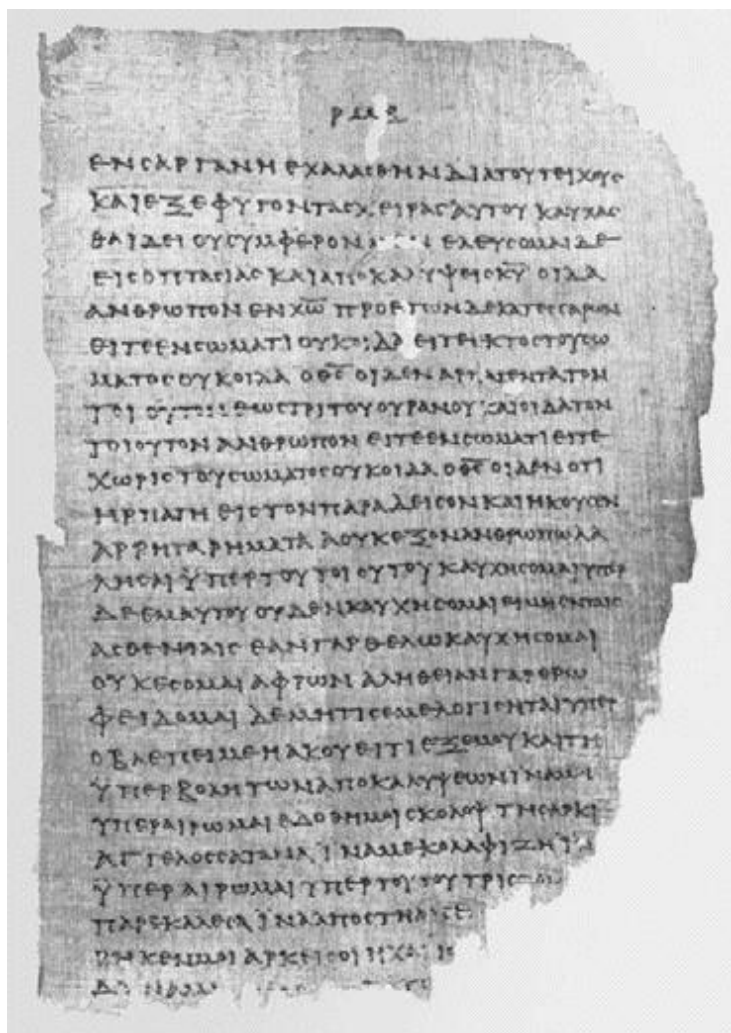 ΡΜϚ
ΕΝ ΣΑΡΓΑΝΗ ΕΧΑΛΑΣΘΗΝ ΔΙΑ ΤΟΥ ΤΕΙΧΟΥΣ
ΚΑΙ ΕΞΕΦΥΓΟΝ ΤΑΣ ΧΕΙΡΑΣ ΑΥΤΟΥ ΚΑΥΧΑΣ
ΘΑΙ ΔΕΙ ΟΥ ΣΥΜΦΕΡΟΝ ΕΛΕΥΣΟΜΑΙ ΔΕ
ΕΙΣ ΟΠΤΑΣΙΑΣ ΚΑΙ ΑΠΟΚΑΛΥΨΕΙΣ ΚΥ ΟΙΔΑ
ΑΝΘΡΩΠΟΝ ΕΝ ΧΩ ΠΡΟ ΕΤΩΝ ΔΕΚΑΤΕΣΣΑΡΩΝ
ΕΙΤΕ ΕΝ ΣΩΜΑΤΙ ΟΥΚ ΟΙΔΑ ΕΙΤΕ ΕΚΤΟΣ ΤΟΥ ΣΩ
ΜΑΤΟΣ ΟΥΚ ΟΙΔΑ Ο ΘΣ ΟΙΔΕΝ ΑΡΠΑΓΕΝΤΑ ΤΟΝ
ΤΟΙΟΥΤΟΝ ΕΩΣ ΤΡΙΤΟΥ ΟΥΡΑΝΟΥ ΚΑΙ ΟΙΔΑ ΤΟΝ
ΤΟΙΟΥΤΟΝ ΑΝΘΡΩΠΟΝ ΕΙΤΕ ΕΝ ΣΩΜΑΤΙ ΕΙΤΕ
ΧΩΡΙΣ ΤΟΥ ΣΩΜΑΤΟΣ ΟΥΚ ΟΙΔΑ Ο ΘΣ ΟΙΔΕΝ ΟΤΙ
ΗΡΠΑΓΗ ΕΙΣ ΤΟΝ ΠΑΡΑΔΕΙΣΟΝ ΚΑΙ ΗΚΟΥΣΕΝ
ΑΡΡΗΤΑ ΡΗΜΑΤΑ Α ΟΥΚ ΕΞΟΝ ΑΝΘΡΩΠΩ ΛΑ
ΛΗΣΑΙ ΥΠΕΡ ΤΟΥ ΤΟΙΟΥΤΟΥ ΚΑΥΧΗΣΟΜΑΙ ΥΠΕΡ
ΔΕ ΕΜΑΥΤΟΥ ΟΥΔΕΝ ΚΑΥΧΗΣΟΜΑΙ ΕΙ ΜΗ ΕΝ ΤΑΙΣ
ΑΣΘΕΝΙΑΙΣ ΕΑΝ ΓΑΡ ΘΕΛΩ ΚΑΥΧΗΣΟΜΑΙ
ΟΥΚ ΕΣΟΜΑΙ ΑΦΡΩΝ ΑΛΗΘΕΙΑΝ ΓΑΡ ΕΡΩ
ΦΕΙΔΟΜΑΙ ΔΕ ΜΗ ΤΙΣ ΕΜΕ ΛΟΓΙΣΗΤΑΙ ΥΠΕΡ
Ο ΒΛΕΠΕΙ ΜΕ Η ΑΚΟΥΕΙ ΤΙ ΕΞ ΕΜΟΥ ΚΑΙ ΤΗ
ΥΠΕΡΒΟΛΗ ΤΩΝ ΑΠΟΚΑΛΥΨΕΩΝ ΙΝΑ ΜΗ
ΥΠΕΡΑΙΡΩΜΑΙ ΕΔΟΘΗ ΜΟΙ ΣΚΟΛΟΨ ΤΗ ΣΑΡΚΙ
ΑΓΓΕΛΟΣ ΣΑΤΑΝΑ ΙΝΑ ΜΕ ΚΟΛΑΦΙΖΗ
ΥΠΕΡΑΙΡΩΜΑΙ ΥΠΕΡ ΤΟΥΤΟΥ ΤΡΙΣ
ΠΑΡΕΚΑΛΕΣΑ ΙΝΑ ΑΠΟΣΤΗ
ΡΗΚΕΝ ΜΟΙ ΑΡΚΕΙ ΣΟΙ Η ΧΑ